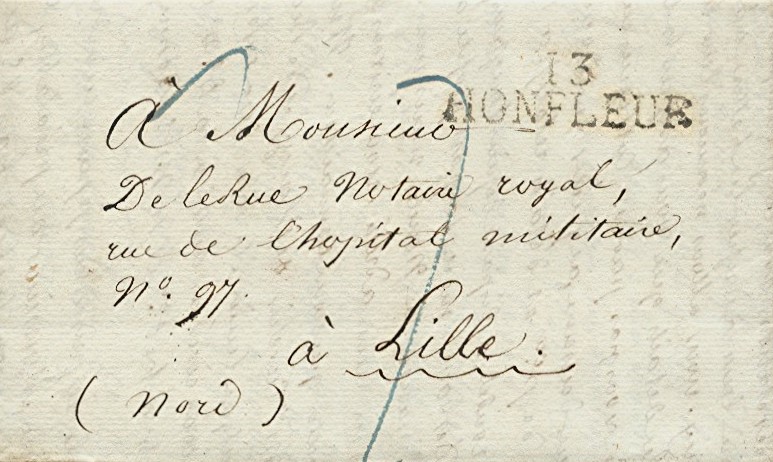 13
HONFLEUR
à Monsieur
DeleRue Notaire royal,
rue de l'hopital militaire,
N.º 97.
à Lille.
(Nord)